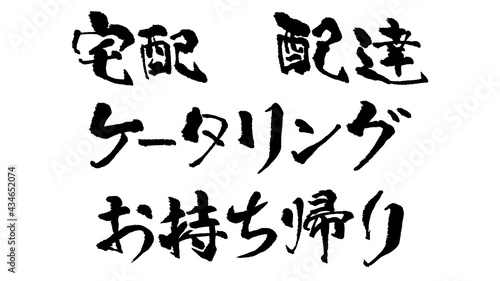 宅配 配達
ケータリング
お持ち帰り
Adobe Stock | #434652074
Adobe Stock